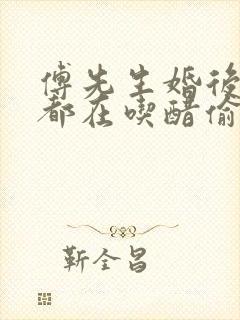 傅先生婚後
都在喫醋偷
靳全昌